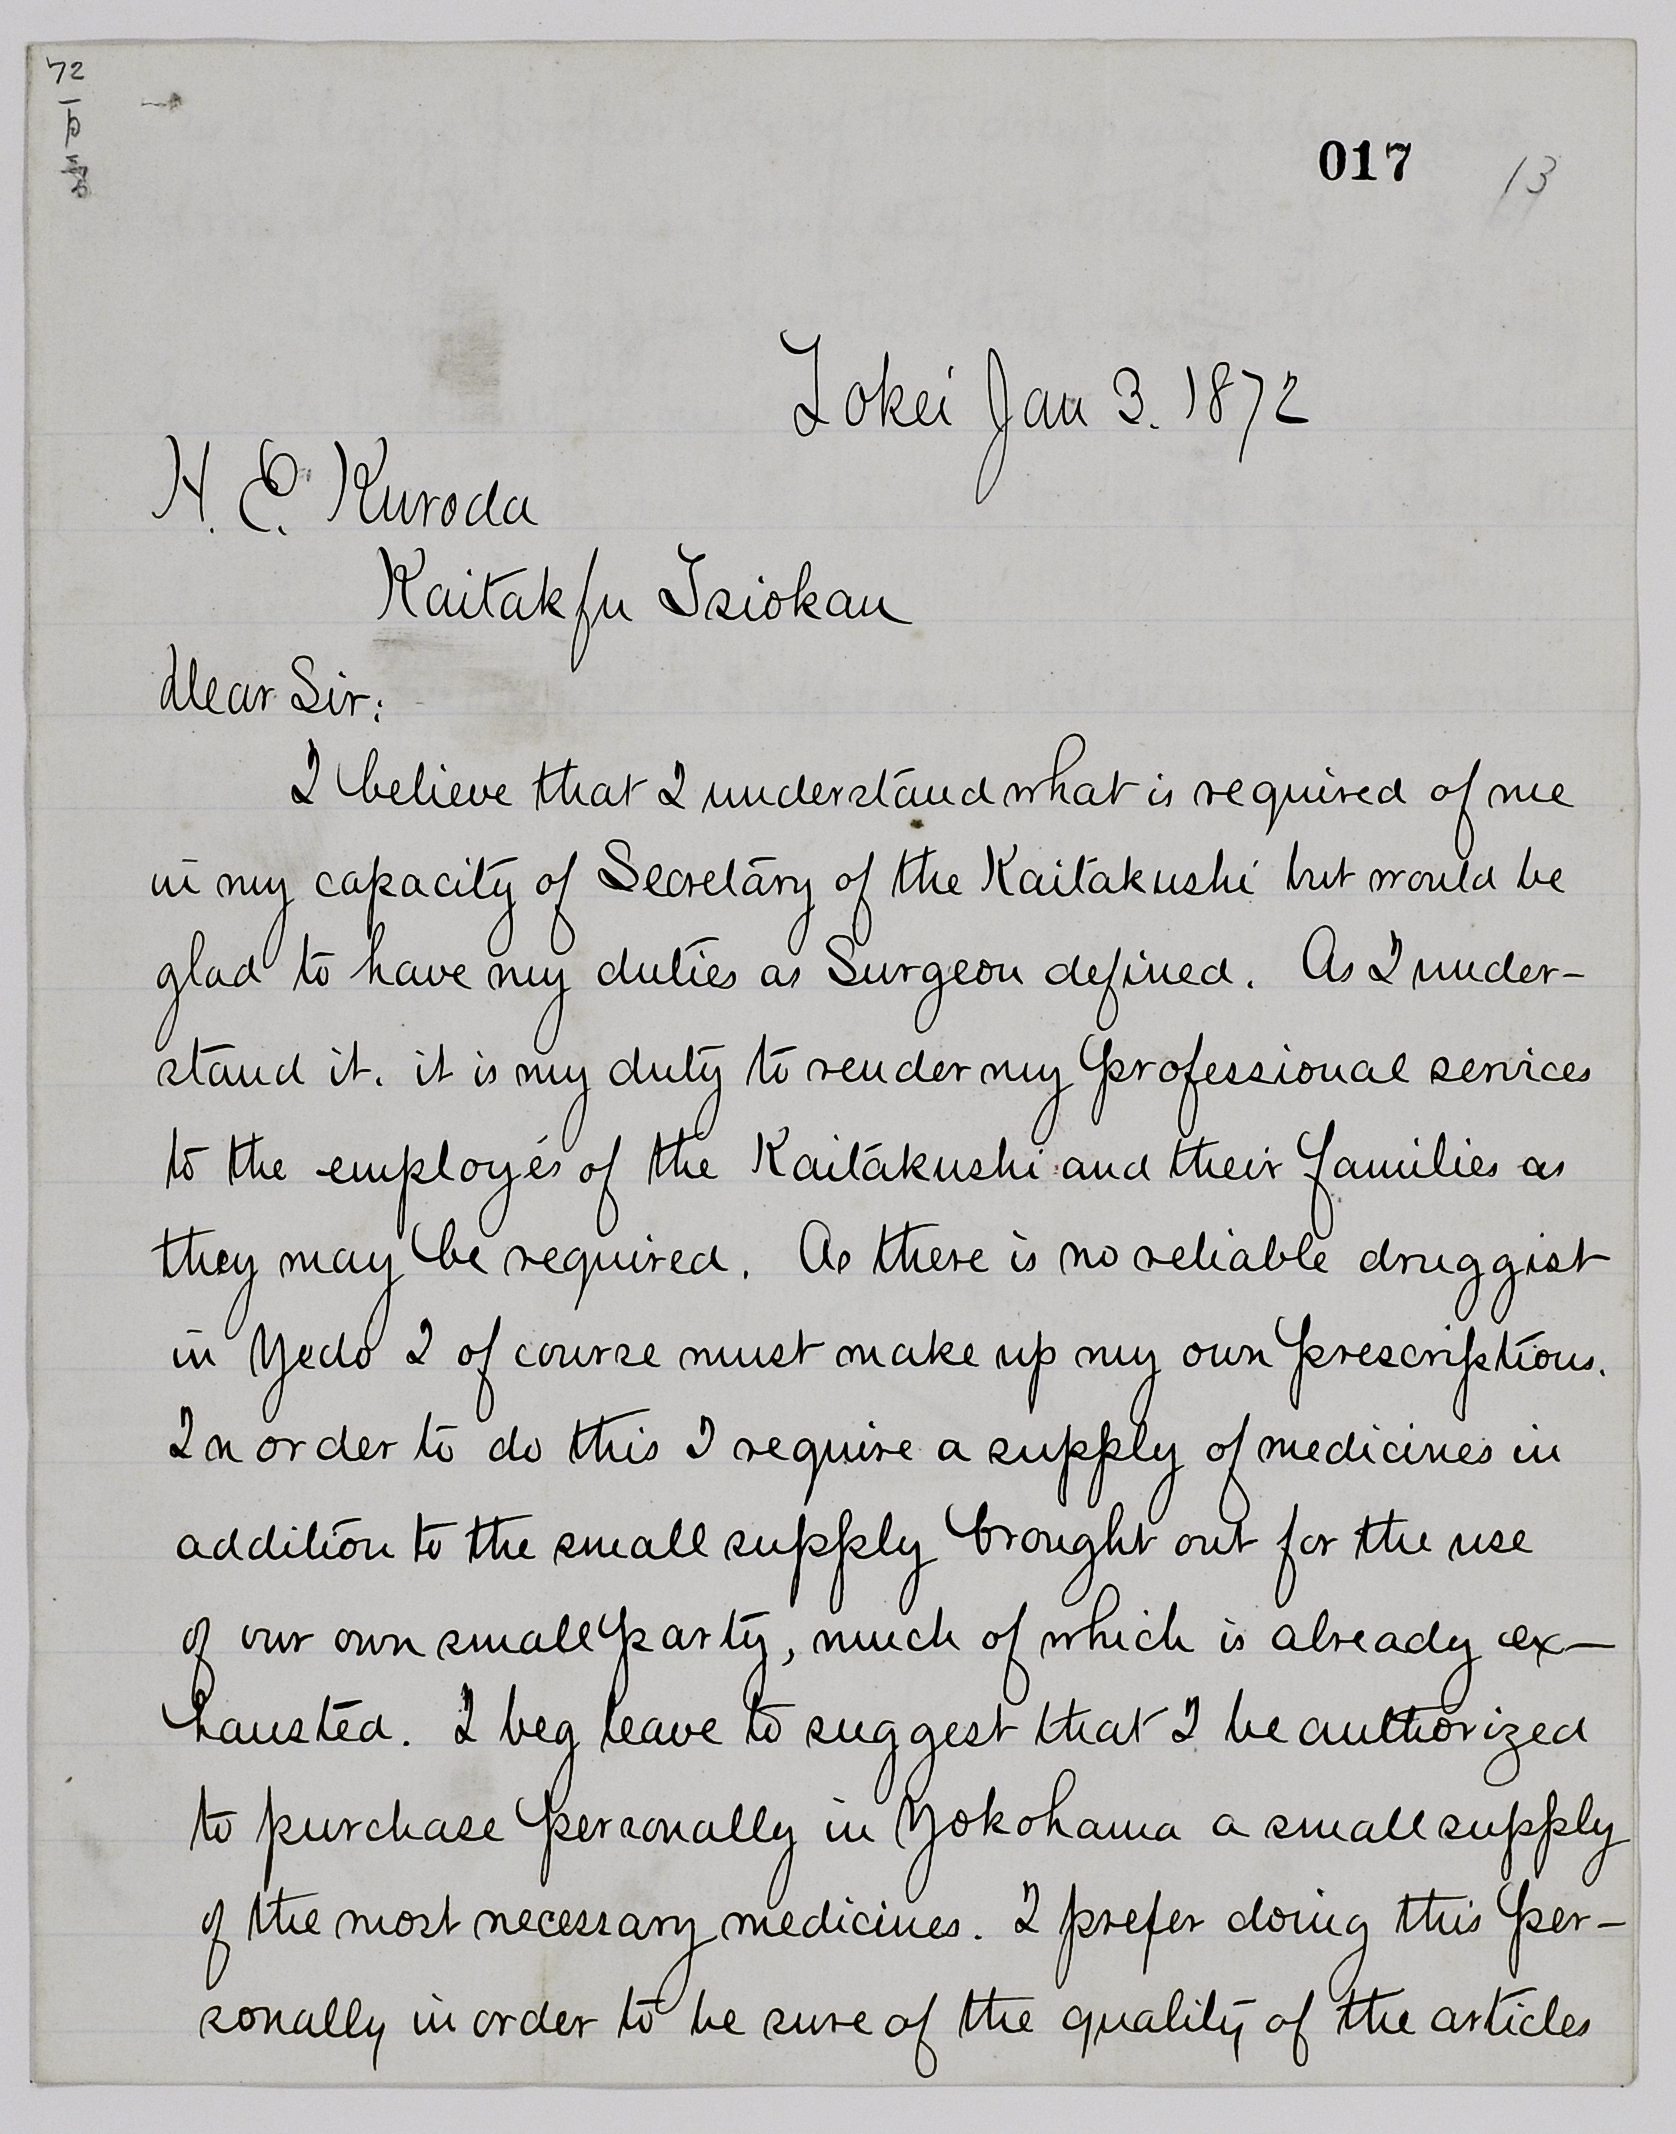 72
一月三号
017
13
Tokei Jan 3. 1872
H. E. Kuroda
Kaitakfu Isiokan
Dear Sir:
I believe that I understand what is required of me
in my capacity of Secretary of the Kaitakushi but would be
glad to have my duties as Surgeon defined. As I under-
stand it. it is my duty to render my professional services
to the employés of the Kaitakushi and their families as
they may be required. As there is no reliable druggist
in Yedo I of course must make up my own prescriptions.
In order to do this I require a supply of medicines in
addition to the small supply brought out for the use
of our own small party, much of which is already ex-
hausted. I beg leave to suggest that I be authorized
to purchase personally in Yokohama a small supply
of the most necessary medicines. I prefer doing this per-
sonally in order to be sure of the quality of the articles